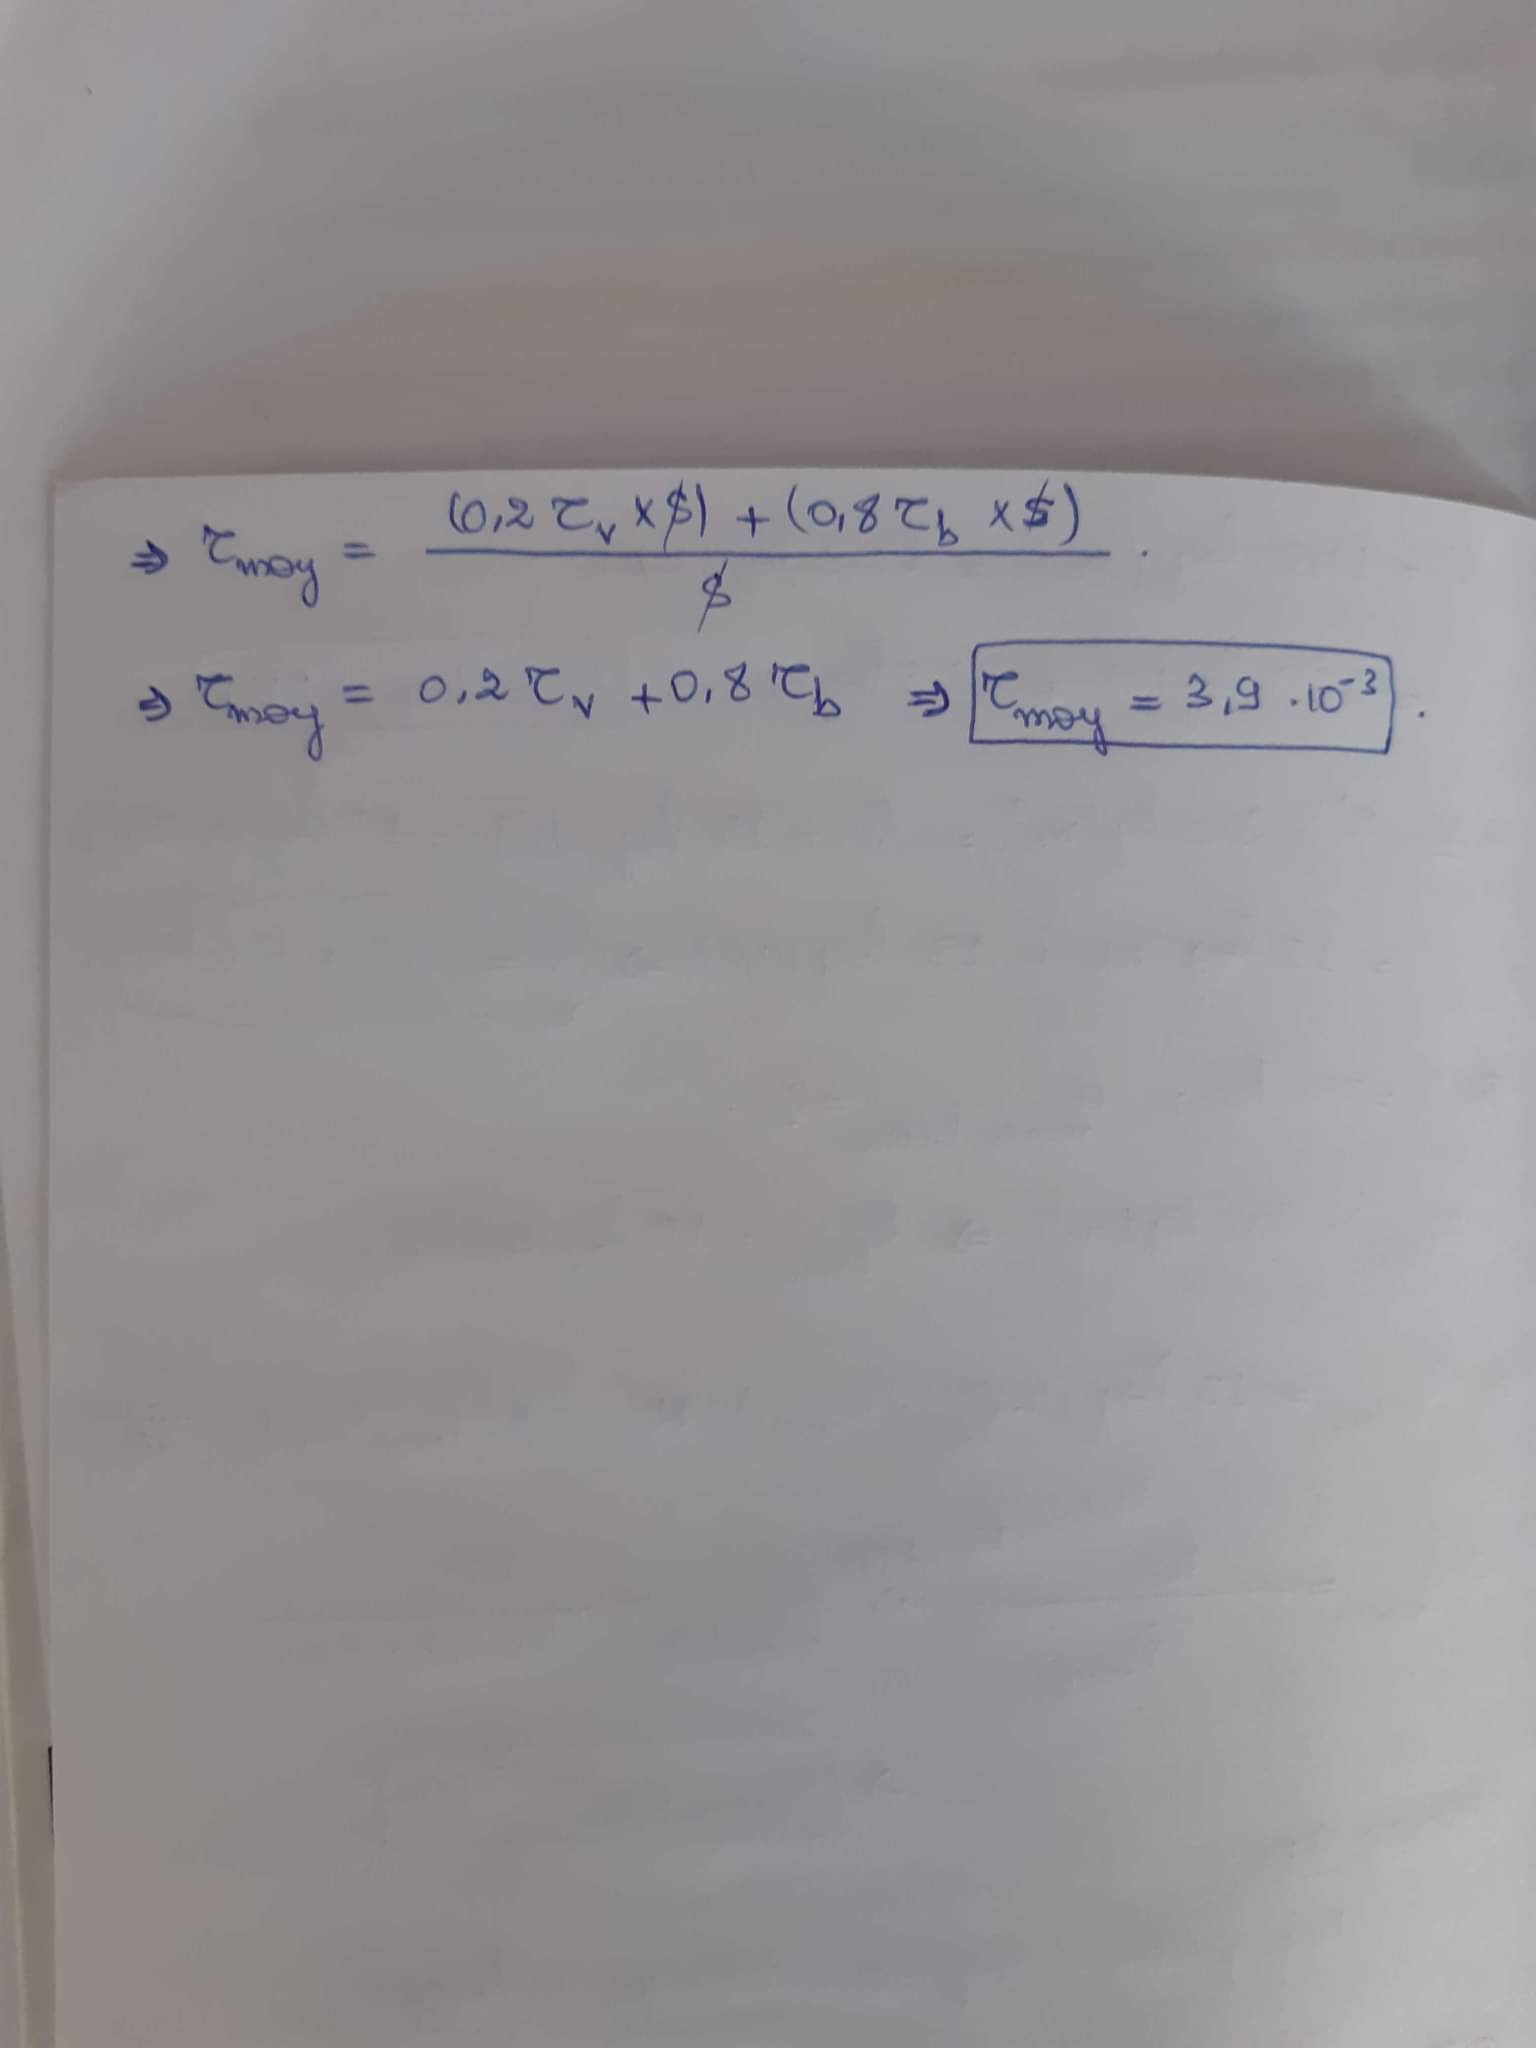 ⇒ τmoy = ((0,2 τv × S) + (0,8 τb × S)) / S .
⇒ τmoy = 0,2 τv + 0,8 τb ⇒ τmoy = 3,9 . 10⁻³ .